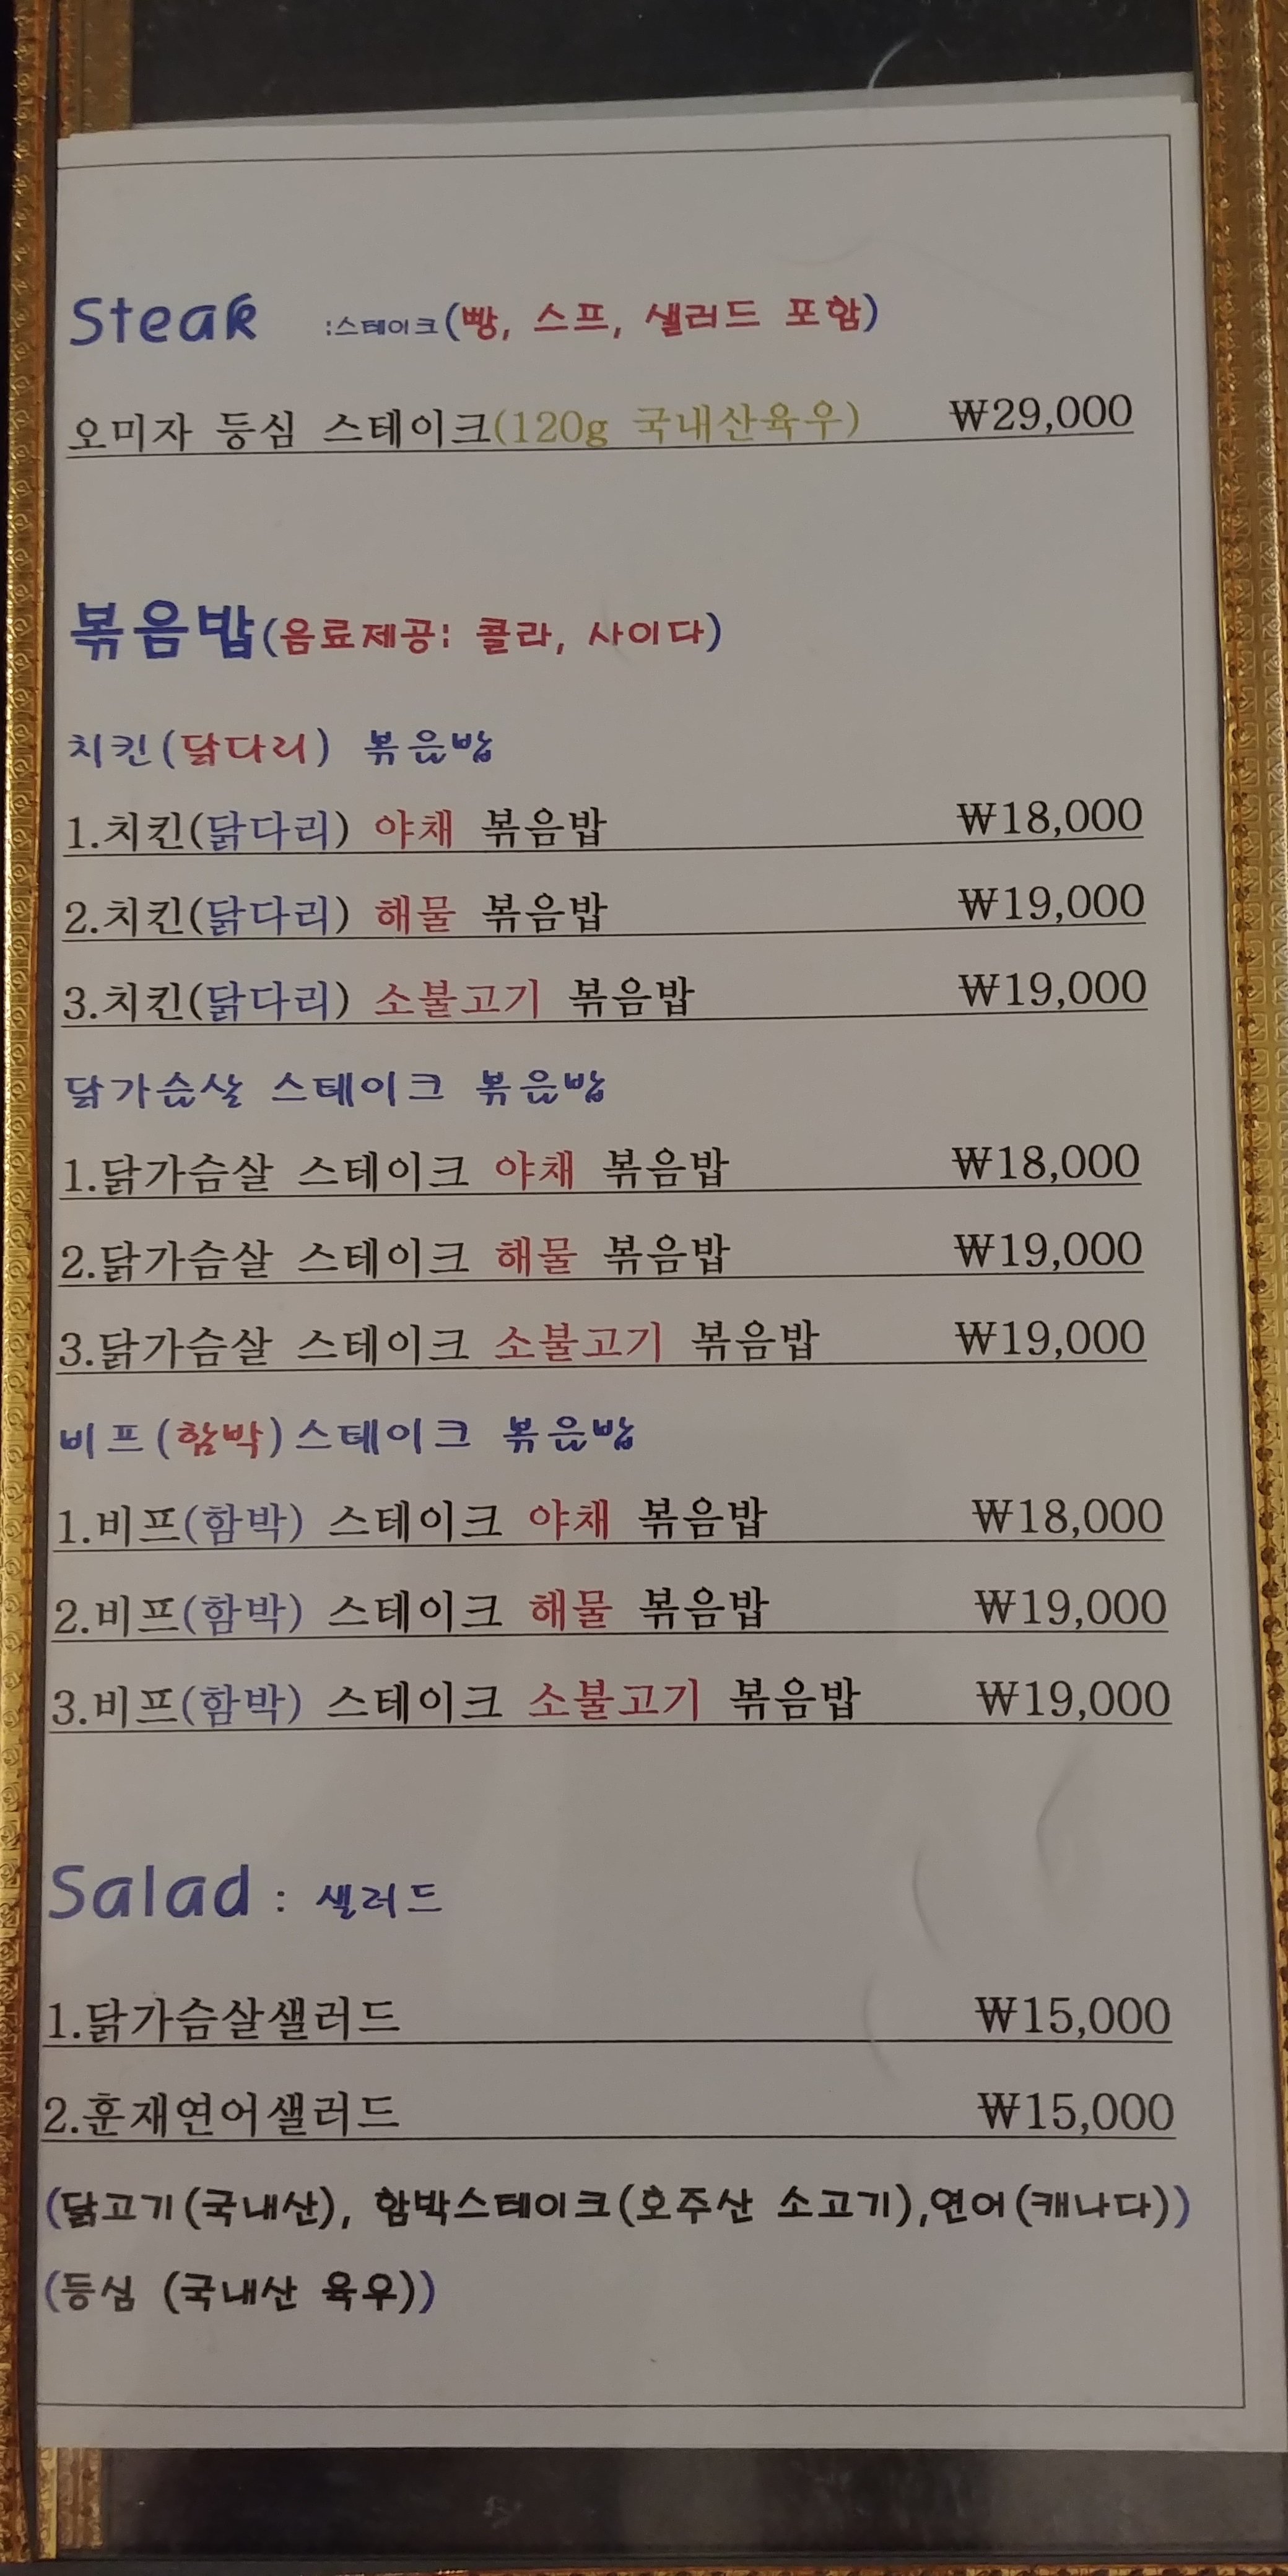 Steak :스테이크(빵, 스프, 샐러드 포함)
오미자 등심 스테이크(120g 국내산육우) ₩29,000
볶음밥(음료제공: 콜라, 사이다)
치킨(닭다리) 볶음밥
1.치킨(닭다리) 야채 볶음밥 ₩18,000
2.치킨(닭다리) 해물 볶음밥 ₩19,000
3.치킨(닭다리) 소불고기 볶음밥 ₩19,000
닭가슴살 스테이크 볶음밥
1.닭가슴살 스테이크 야채 볶음밥 ₩18,000
2.닭가슴살 스테이크 해물 볶음밥 ₩19,000
3.닭가슴살 스테이크 소불고기 볶음밥 ₩19,000
비프(함박)스테이크 볶음밥
1.비프(함박) 스테이크 야채 볶음밥 ₩18,000
2.비프(함박) 스테이크 해물 볶음밥 ₩19,000
3.비프(함박) 스테이크 소불고기 볶음밥 ₩19,000
Salad : 샐러드
1.닭가슴살샐러드 ₩15,000
2.훈재연어샐러드 ₩15,000
(닭고기(국내산), 함박스테이크(호주산 소고기),연어(캐나다))
(등심 (국내산 육우))